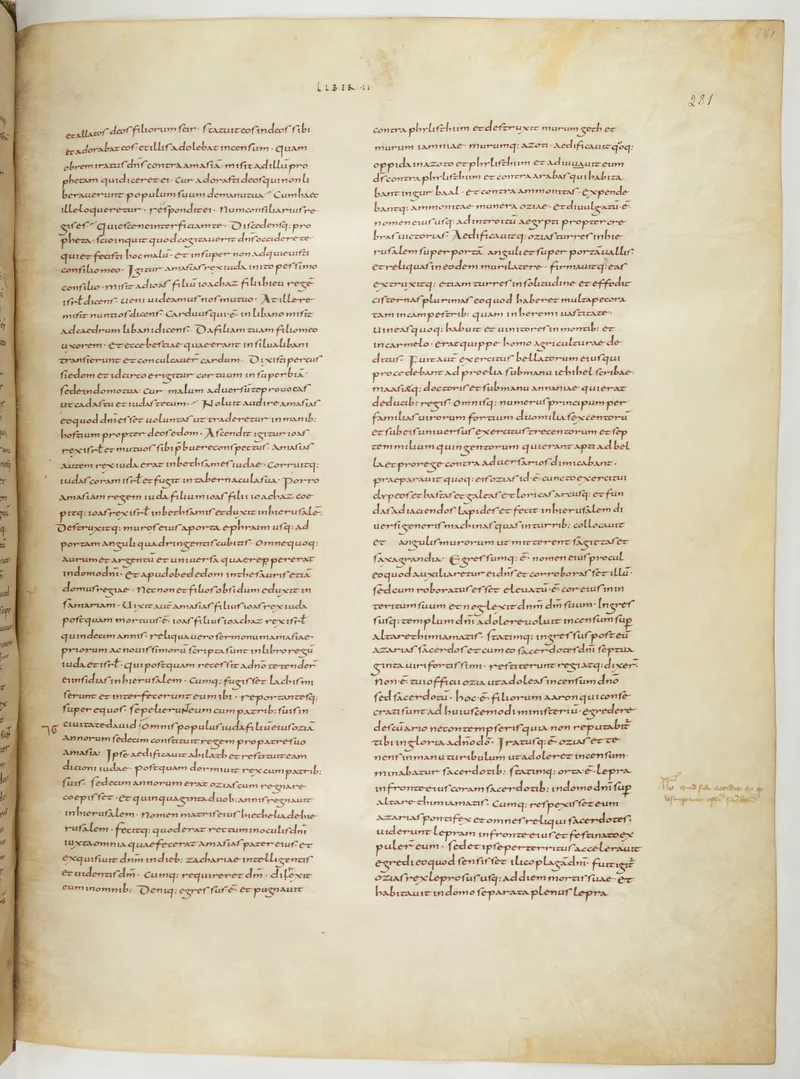 LIBER II
281
et allatos deos filiorum seir · statuit eos in deos sibi
et adorabat eos et illis adolebat incensum · quam
obrem iratus dn̄s contra amasiā · misit ad illū pro
phetam qui diceret ei · Cur adorasti deos qui non li
berauerunt populum suum de manu tua · Cum haec
ille loqueretur · respondit ei · Num consiliarius re
gis es · Quiesce ne interficiam te · Discedensq: pro
pheta · scio inquit quod cogitauerit dn̄s occidere te
quia fecisti hoc malū · et insuper non adquieuisti
consilio meo · Igitur amasias rex iuda inito pessimo
consilio · misit ad ioas filiū ioachaz filii hieu regē
isrl̄ dicens · Ueni uideamus nos mutuo · At ille re
misit nuntios dicens · Carduus qui ē in libano misit
ad caedrum libani dicens · Da filiam tuam filio meo
uxorem · Et ecce bestiae quae erant in silua libani
transierunt et conculcauer̄ cardum · Dixisti percus
si edom et idcirco erigitur cor tuum in superbiā ·
sede in domo tua · Cur malum aduersū te prouocas
ut cadas tu et iudas tecum · Noluit audire amasias
eo quod dn̄i esset uoluntas ut traderetur in manib:
hostium propter deos edom · Ascendit igitur ioas
rex isrl̄ et mutuos sibi p̄buere conspectus · Amasias
autem rex iuda erat in bethsames iudae · Corruitq:
iudas coram isrl̄ et fugit in tabernacula sua · Porro
amasiam regem iuda filium ioas filii ioachaz coe
pit ioas rex isrl̄ in bethsamis et duxit in hierusalē ·
Destruxitq: muros eius a porta ephraim usq: ad
portam anguli quadringentis cubitis · Omne quoq:
aurum et argentū et uniuersa quae reppererat
in domo dn̄i · Et apud obededom in thesauris etiā
domus regiae · Nec non et filios obsidum eduxit in
samariam · Uixit aut̄ amasias filius ioas rex iuda
postquam mortuus ē ioas filius ioachaz rex isrl̄
quindecim annis · reliqua uero sermonum amasiae ·
priorum ac nouissimorū scripta sunt in libro regū
iuda et isrl̄ · qui postquam recessit a dn̄o tetender̄
ei insidias in hierusalem · Cumq: fugisset lachis mi
serunt et interfecerunt eum ibi · reportantesq:
super equos · sepelierunt eum cum patrib: suis in
ciuitate dauid · Omnis populus iuda filiū eius oziā
annorum sedecim constituit regem pro patre suo
amasia · Ipse aedificauit ahilath et restituit eam
dicioni iudae · postquam dormiuit rex cum patrib:
suis · sedecim annorum erat ozias cum regnare
coepisset · Et quinquaginta duob: annis regnauit
in hierusalem · Nomen matris eius hiechelia de hie
rusalem · fecitq: quod erat rectum in oculis dn̄i
iuxta omnia quae fecerat amasias pater eius · et
exquisiuit dn̄m in dieb: zachariae intelligentis
et uidentis dm̄ · Cumq: requireret dm̄ · direxit
eum in omnib: Deniq: egressus ē et pugnauit
contra philisthiim et destruxit murum geth et
murum iamniae · murumq: azoti · Aedificauit q̄oq:
oppida in azoto et philisthiim et adiuuauit eum
ds̄ contra philisthiim et contra arabas qui habita
bant in gur baal · et contra ammonitas · expende
bantq: ammonitae munera oziae · et diuulgatū ē
nomen eius usq: ad introitū aegypti propter cre
bras uictorias · Aedificauitq: ozias turres in hie
rusalem super portā anguli et super portā uallis
et reliquas in eodem muri latere · firmauitq: eas
extruxitq: etiam turres in solitudine et effodit
cisternas plurimas eo quod haberet multa pecora
tam in campestrib: quam in heremi uastitate ·
Uineas quoq: habuit et uinitores in montib: et
in carmelo · Erat quippe homo agriculturae de
ditus · Fuit aut̄ exercitus bellatorum eius qui
procedebant ad proelia sub manu iehihel scribae
maasiaeq: doctoris et sub manu ananiae qui erat
de ducib: regis · Omnisq: numerus principum per
familias uirorum fortium duo milia sexcentorū
et sub eis uniuersus exercitus trecentorum et sep
tem milium quingentorum qui erant apti ad bel
la et pro rege contra aduersarios dimicabant ·
praeparauit quoq: eis ozias id ē cuncto exercitui
clypeos et hastas et galeas et loricas arcusq: et fun
das ad iaciendos lapides et fecit in hierusalem di
uersi generis machinas quas in turrib: collocauit
et angulis murorum ut mitterent sagittas et
saxa grandia · Egressumq: ē nomen eius procul
eo quod auxiliaretur ei dn̄s et corroborasset illū ·
sed cum roboratus esset eleuatū ē cor eius in in
teritum suum et neglexit dn̄m dm̄ suum · Ingres
susq: templum dn̄i adolere uoluit incensum sup̄
altare thimiamatis · statimq: ingressus post eū
azarias sacerdos et cum eo sacerdotes dn̄i septua
ginta uiri fortissimi · restiterunt regi atq: dixer̄
Non ē tui officii ozia ut adoleas incensum dn̄o
sed sacerdotū · hoc ē filiorum aaron qui conse
crati sunt ad huiuscemodi ministeriū · egredere
de sc̄uario ne contempseris quia non reputabit̄
tibi in gloria a dn̄o dō · Iratusq: ē ozias et te
nens in manu turibulum ut adoleret incensum ·
minabatur sacerdotib: statimq: orta ē lepra
in fronte eius coram sacerdotib: in domo dn̄i sup̄
altare thimiamatis · Cumq: respexisset eum
azarias pontifex et omnes reliqui sacerdotes ·
uiderunt lepram in fronte eius et festinato ex
puler̄ eum · sed et ipse perterritus accelerauit
egredi eo quod sensisset ilico plagā dn̄i · fuit igit̄
ozias rex leprosus usq: ad diem mortis suae · et
habitauit in domo separata plenus lepra